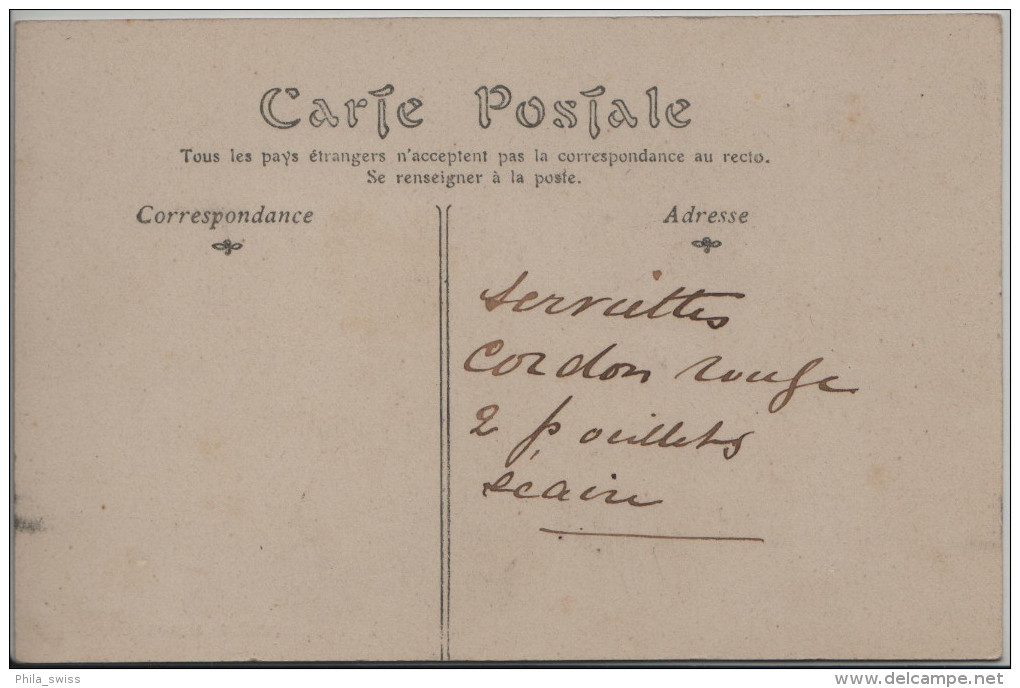 Carte Postale
Tous les pays étrangers n'acceptent pas la correspondance au recto.
Se renseigner à la poste.
Correspondance
Adresse
serviettes
Cordon rouge
2 p oeillets
Phila_swiss
www.delcampe.net